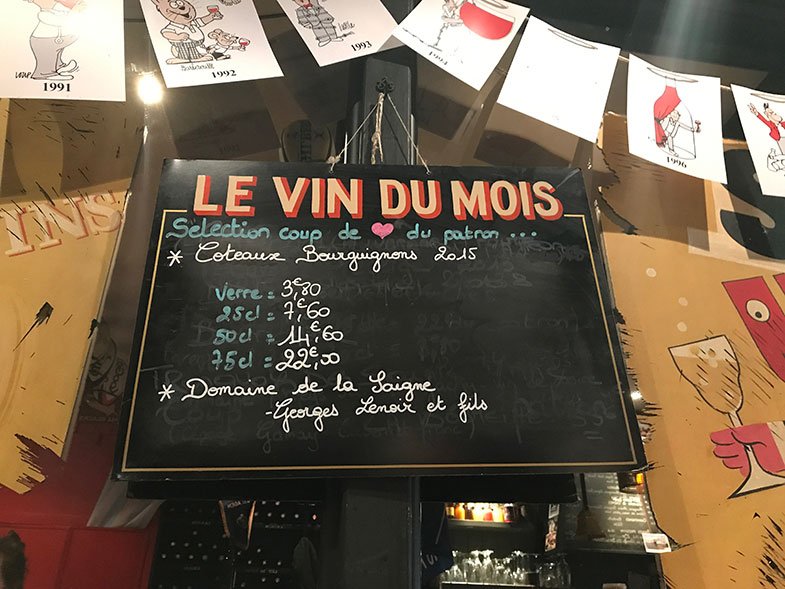 1991
1992
1993
1994
1996
INS
LE VIN DU MOIS
Sélection coup de du patron ...
* Coteaux Bourguignons 2015
verre = 3€,80
25cl = 7€,60
50cl = 14€,60
75cl = 22€,00
* Domaine de la Saigne
-Georges Lenoir et fils